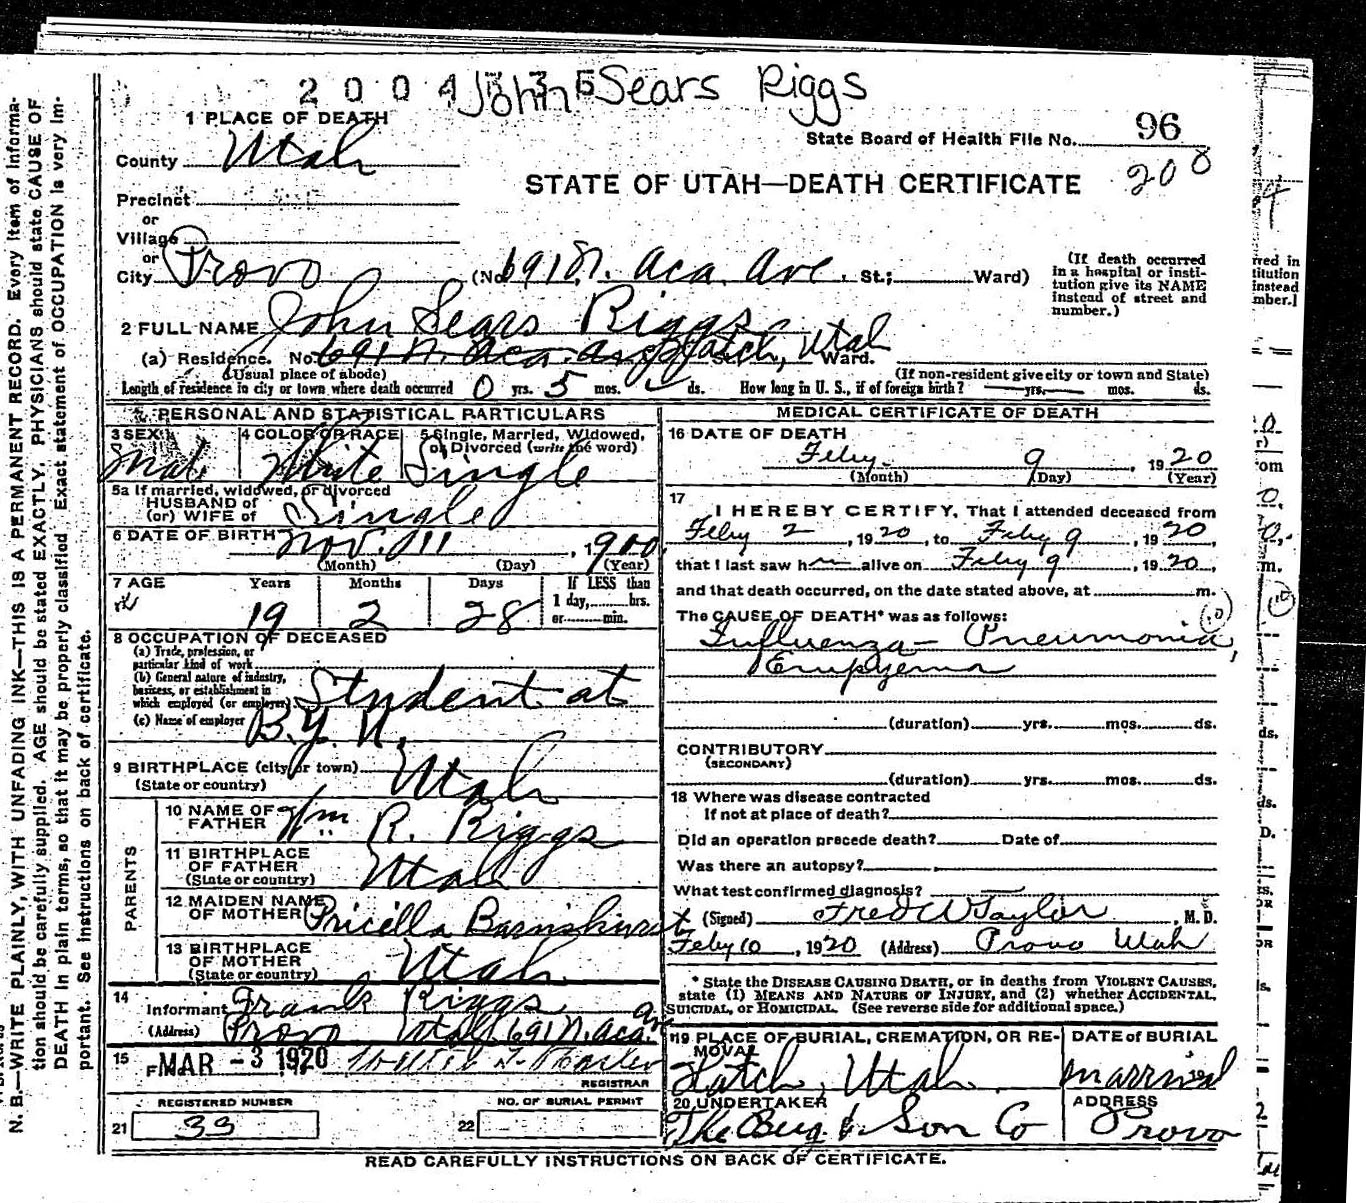 2004335 John Sears Riggs
1 PLACE OF DEATH
State Board of Health File No. 96
County Utah
208
STATE OF UTAH—DEATH CERTIFICATE
Precinct
or
Village
or
City Provo (No 691 N. Aca. Ave. St.; Ward)
(If death occurred in a hospital or institution give its NAME instead of street and number.)
2 FULL NAME John Sears Riggs
(a) Residence. No. 691 N. Aca. Hatch, Utah Ward.
(Usual place of abode) (If non-resident give city or town and State)
Length of residence in city or town where death occurred 0 yrs. 5 mos. ds. How long in U. S., if of foreign birth? yrs. mos. ds.
PERSONAL AND STATISTICAL PARTICULARS
3 SEX Male
4 COLOR OR RACE White
5 Single, Married, Widowed, or Divorced (write the word) Single
5a If married, widowed, or divorced
HUSBAND of
(or) WIFE of Single
6 DATE OF BIRTH Nov. 11, 1900
(Month) (Day) (Year)
7 AGE Years Months Days If LESS than
19 2 28 1 day, hrs.
or min.
8 OCCUPATION OF DECEASED
(a) Trade, profession, or
particular kind of work
(b) General nature of industry,
business, or establishment in
which employed (or employer) Student at
(c) Name of employer B.Y.U.
9 BIRTHPLACE (city or town)
(State or country) Utah
PARENTS
10 NAME OF
FATHER Wm R. Riggs
11 BIRTHPLACE
OF FATHER
(State or country) Utah
12 MAIDEN NAME
OF MOTHER Pricilla Barnshurst
13 BIRTHPLACE
OF MOTHER
(State or country) Utah
14
Informant Frank Riggs
(Address) Provo Utah 691 N. Aca. Ave
15 MAR -3 1920
REGISTRAR
REGISTERED NUMBER
21 33
NO. OF BURIAL PERMIT
22
MEDICAL CERTIFICATE OF DEATH
16 DATE OF DEATH
Feby 9, 1920
(Month) (Day) (Year)
17
I HEREBY CERTIFY, That I attended deceased from
Feby 2, 1920, to Feby 9, 1920,
that I last saw h alive on Feby 9, 1920,
and that death occurred, on the date stated above, at m.
The CAUSE OF DEATH* was as follows:
Influenza — Pneumonia,
Empyema
(duration) yrs. mos. ds.
CONTRIBUTORY
(SECONDARY)
(duration) yrs. mos. ds.
18 Where was disease contracted
If not at place of death?
Did an operation precede death? Date of
Was there an autopsy?
What test confirmed diagnosis?
(Signed) Fred W Taylor, M. D.
Feby 10, 1920 (Address) Provo Utah
* State the DISEASE CAUSING DEATH, or in deaths from VIOLENT CAUSES,
state (1) MEANS AND NATURE OF INJURY, and (2) whether ACCIDENTAL,
SUICIDAL, or HOMICIDAL. (See reverse side for additional space.)
19 PLACE OF BURIAL, CREMATION, OR REMOVAL
Hatch, Utah
DATE of BURIAL
on arrival 19
20 UNDERTAKER
The Berg & Son Co
ADDRESS
Provo
READ CAREFULLY INSTRUCTIONS ON BACK OF CERTIFICATE.
N. B.—WRITE PLAINLY, WITH UNFADING INK—THIS IS A PERMANENT RECORD. Every item of informa-
tion should be carefully supplied. AGE should be stated EXACTLY. PHYSICIANS should state CAUSE OF
DEATH in plain terms, so that it may be properly classified. Exact statement of OCCUPATION is very im-
portant. See instructions on back of certificate.